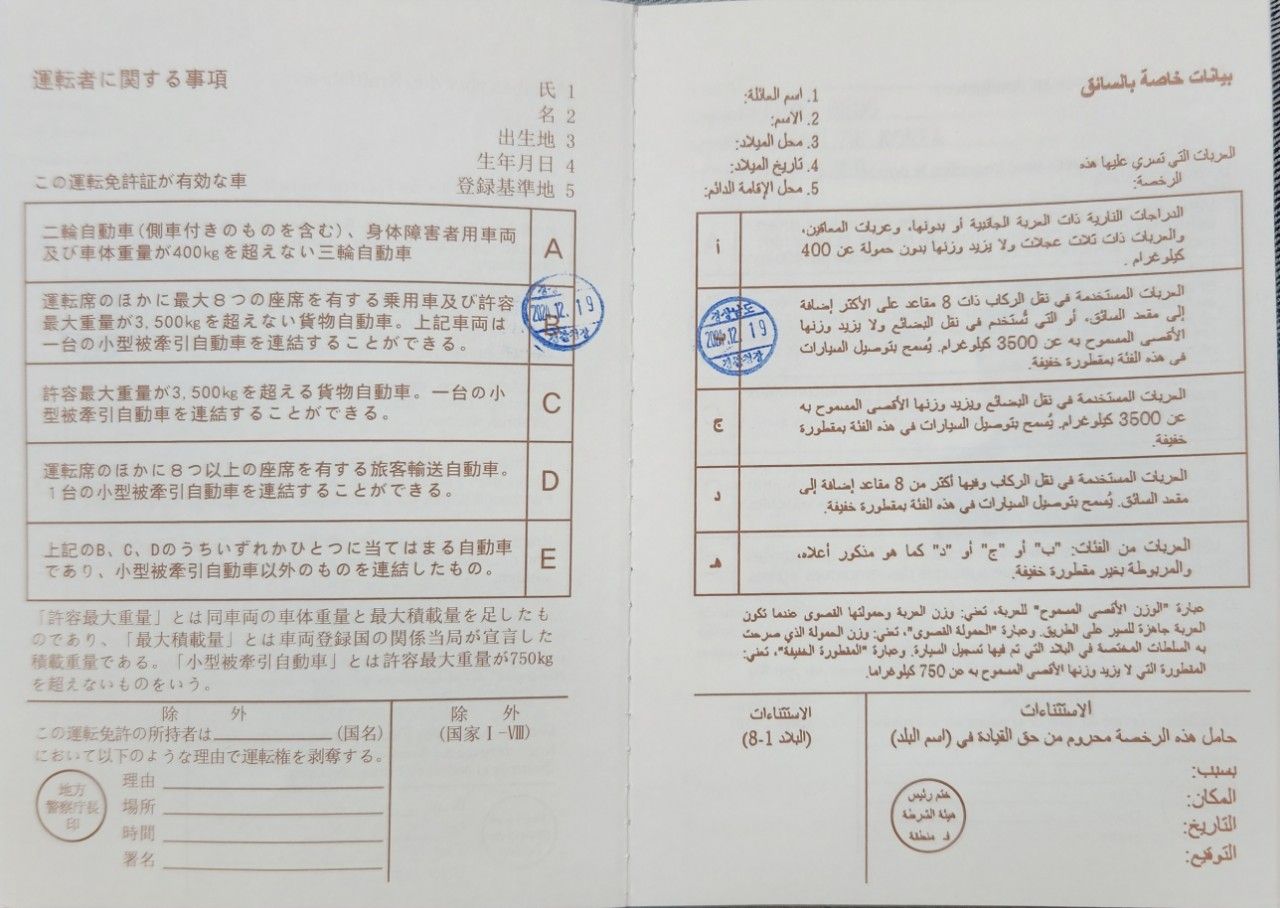 運転者に関する事項
氏 1
名 2
出生地 3
生年月日 4
登録基準地 5
この運転免許証が有効な車
二輪自動車(側車付きのものを含む)、身体障害者用車両
及び車体重量が400kgを超えない三輪自動車
A
運転席のほかに最大8つの座席を有する乗用車及び許容
最大重量が3,500kgを超えない貨物自動車。上記車両は
一台の小型被牽引自動車を連結することができる。
B
12. 19
許容最大重量が3,500kgを超える貨物自動車。一台の小
型被牽引自動車を連結することができる。
C
運転席のほかに8つ以上の座席を有する旅客輸送自動車。
1台の小型被牽引自動車を連結することができる。
D
上記のB、C、Dのうちいずれかひとつに当てはまる自動車
であり、小型被牽引自動車以外のものを連結したもの。
E
「許容最大重量」とは同車両の車体重量と最大積載量を足したも
のであり、「最大積載量」とは車両登録国の関係当局が宣言した
積載重量である。「小型被牽引自動車」とは許容最大重量が750kg
を超えないものをいう。
除 外
この運転免許の所持者は (国名)
において以下のような理由で運転権を剥奪する。
地方
警察庁長
印
理由
場所
時間
署名
除 外
(国家Ⅰ-Ⅷ)
بيانات خاصة بالسائق
1. اسم العائلة:
2. الاسم:
3. محل الميلاد:
4. تاريخ الميلاد:
5. محل الإقامة الدائم:
العربات التي تسري عليها هذه
الرخصة:
أ
الدراجات النارية ذات العربة الجانبية أو بدونها، وعربات المعاقين،
والعربات ذات ثلاث عجلات ولا يزيد وزنها بدون حمولة عن 400
كيلوغرام.
العربات المستخدمة في نقل الركاب ذات 8 مقاعد على الأكثر إضافة
إلى مقعد السائق، أو التي تُستخدم في نقل البضائع ولا يزيد وزنها
الأقصى المسموح به عن 3500 كيلوغرام. يُسمح بتوصيل السيارات
في هذه الفئة بمقطورة خفيفة.
경상남도
12. 19
경찰청장
ج
العربات المستخدمة في نقل البضائع ويزيد وزنها الأقصى المسموح به
عن 3500 كيلوغرام. يُسمح بتوصيل السيارات في هذه الفئة بمقطورة
خفيفة.
د
العربات المستخدمة في نقل الركاب وفيها أكثر من 8 مقاعد إضافة إلى
مقعد السائق. يُسمح بتوصيل السيارات في هذه الفئة بمقطورة خفيفة.
هـ
العربات من الفئات: "ب" أو "ج" أو "د" كما هو مذكور أعلاه،
والمربوطة بغير مقطورة خفيفة.
عبارة "الوزن الأقصى المسموح" للعربة، تعني: وزن العربة وحمولتها القصوى عندما تكون
العربة جاهزة للسير على الطريق. وعبارة "الحمولة القصوى"، تعني: وزن الحمولة الذي صرحت
به السلطات المختصة في البلاد التي تم فيها تسجيل السيارة. وعبارة "المقطورة الخفيفة"، تعني:
المقطورة التي لا يزيد وزنها الأقصى المسموح به عن 750 كيلوغراما.
الاستثناءات
حامل هذه الرخصة محروم من حق القيادة في (اسم البلد)
بسبب:
المكان:
التاريخ:
التوقيع:
ختم رئيس
هيئة الشرطة
في منطقة
الاستثناءات
(البلاد 1-8)